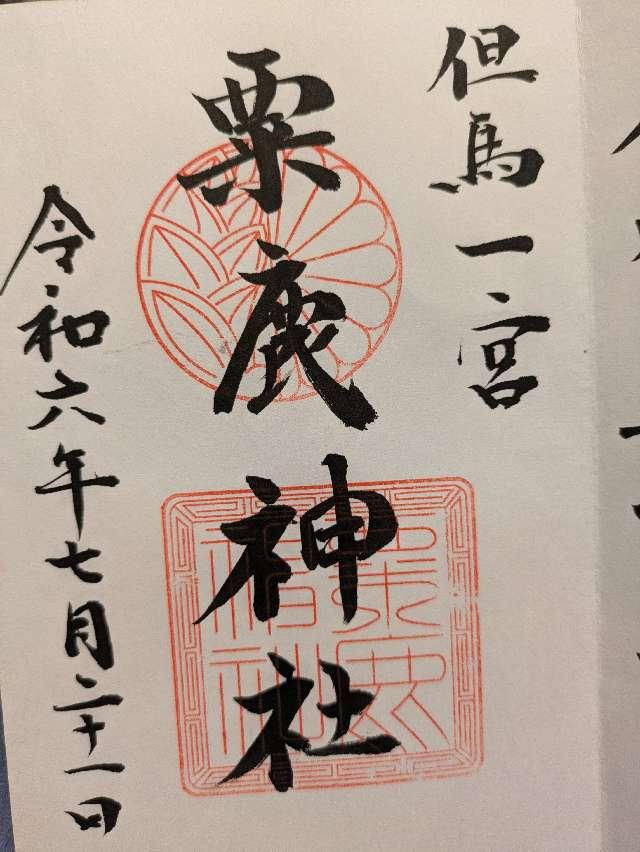 但馬一宮
粟鹿神社
令和六年七月二十一日
粟鹿神社